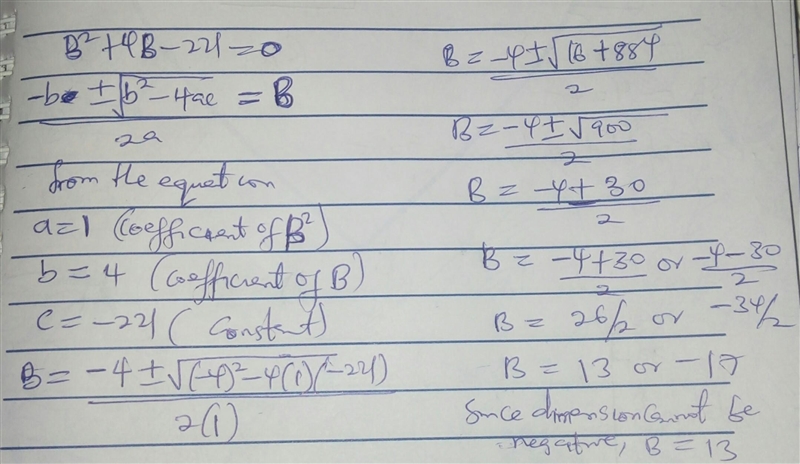 B² + 4B - 221 = 0
-b ± √b² - 4ac = B
2a
from the equation
a = 1 (coefficient of B²)
b = 4 (coefficient of B)
c = -221 (constant)
B = -4 ± √(-4)² - 4(1)(-221)
2(1)
B = -4 ± √16 + 884
2
B = -4 ± √900
2
B = -4 ± 30
2
B = -4 + 30 or -4 - 30
2 2
B = 26/2 or -34/2
B = 13 or -17
Since dimension cannot be
negative, B = 13